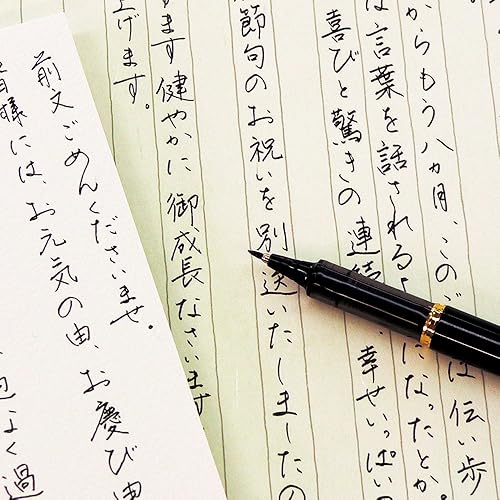 からもう八か月、この は伝い歩
は言葉を話される になったとか
喜びと驚きの連続 幸せいっぱいの
節句のお祝いを別送いたしましたの
ます健やかに御成長なさいます
上げます。
前文ごめんくださいませ。
皆様には、お元気の由、お慶び申
よく過